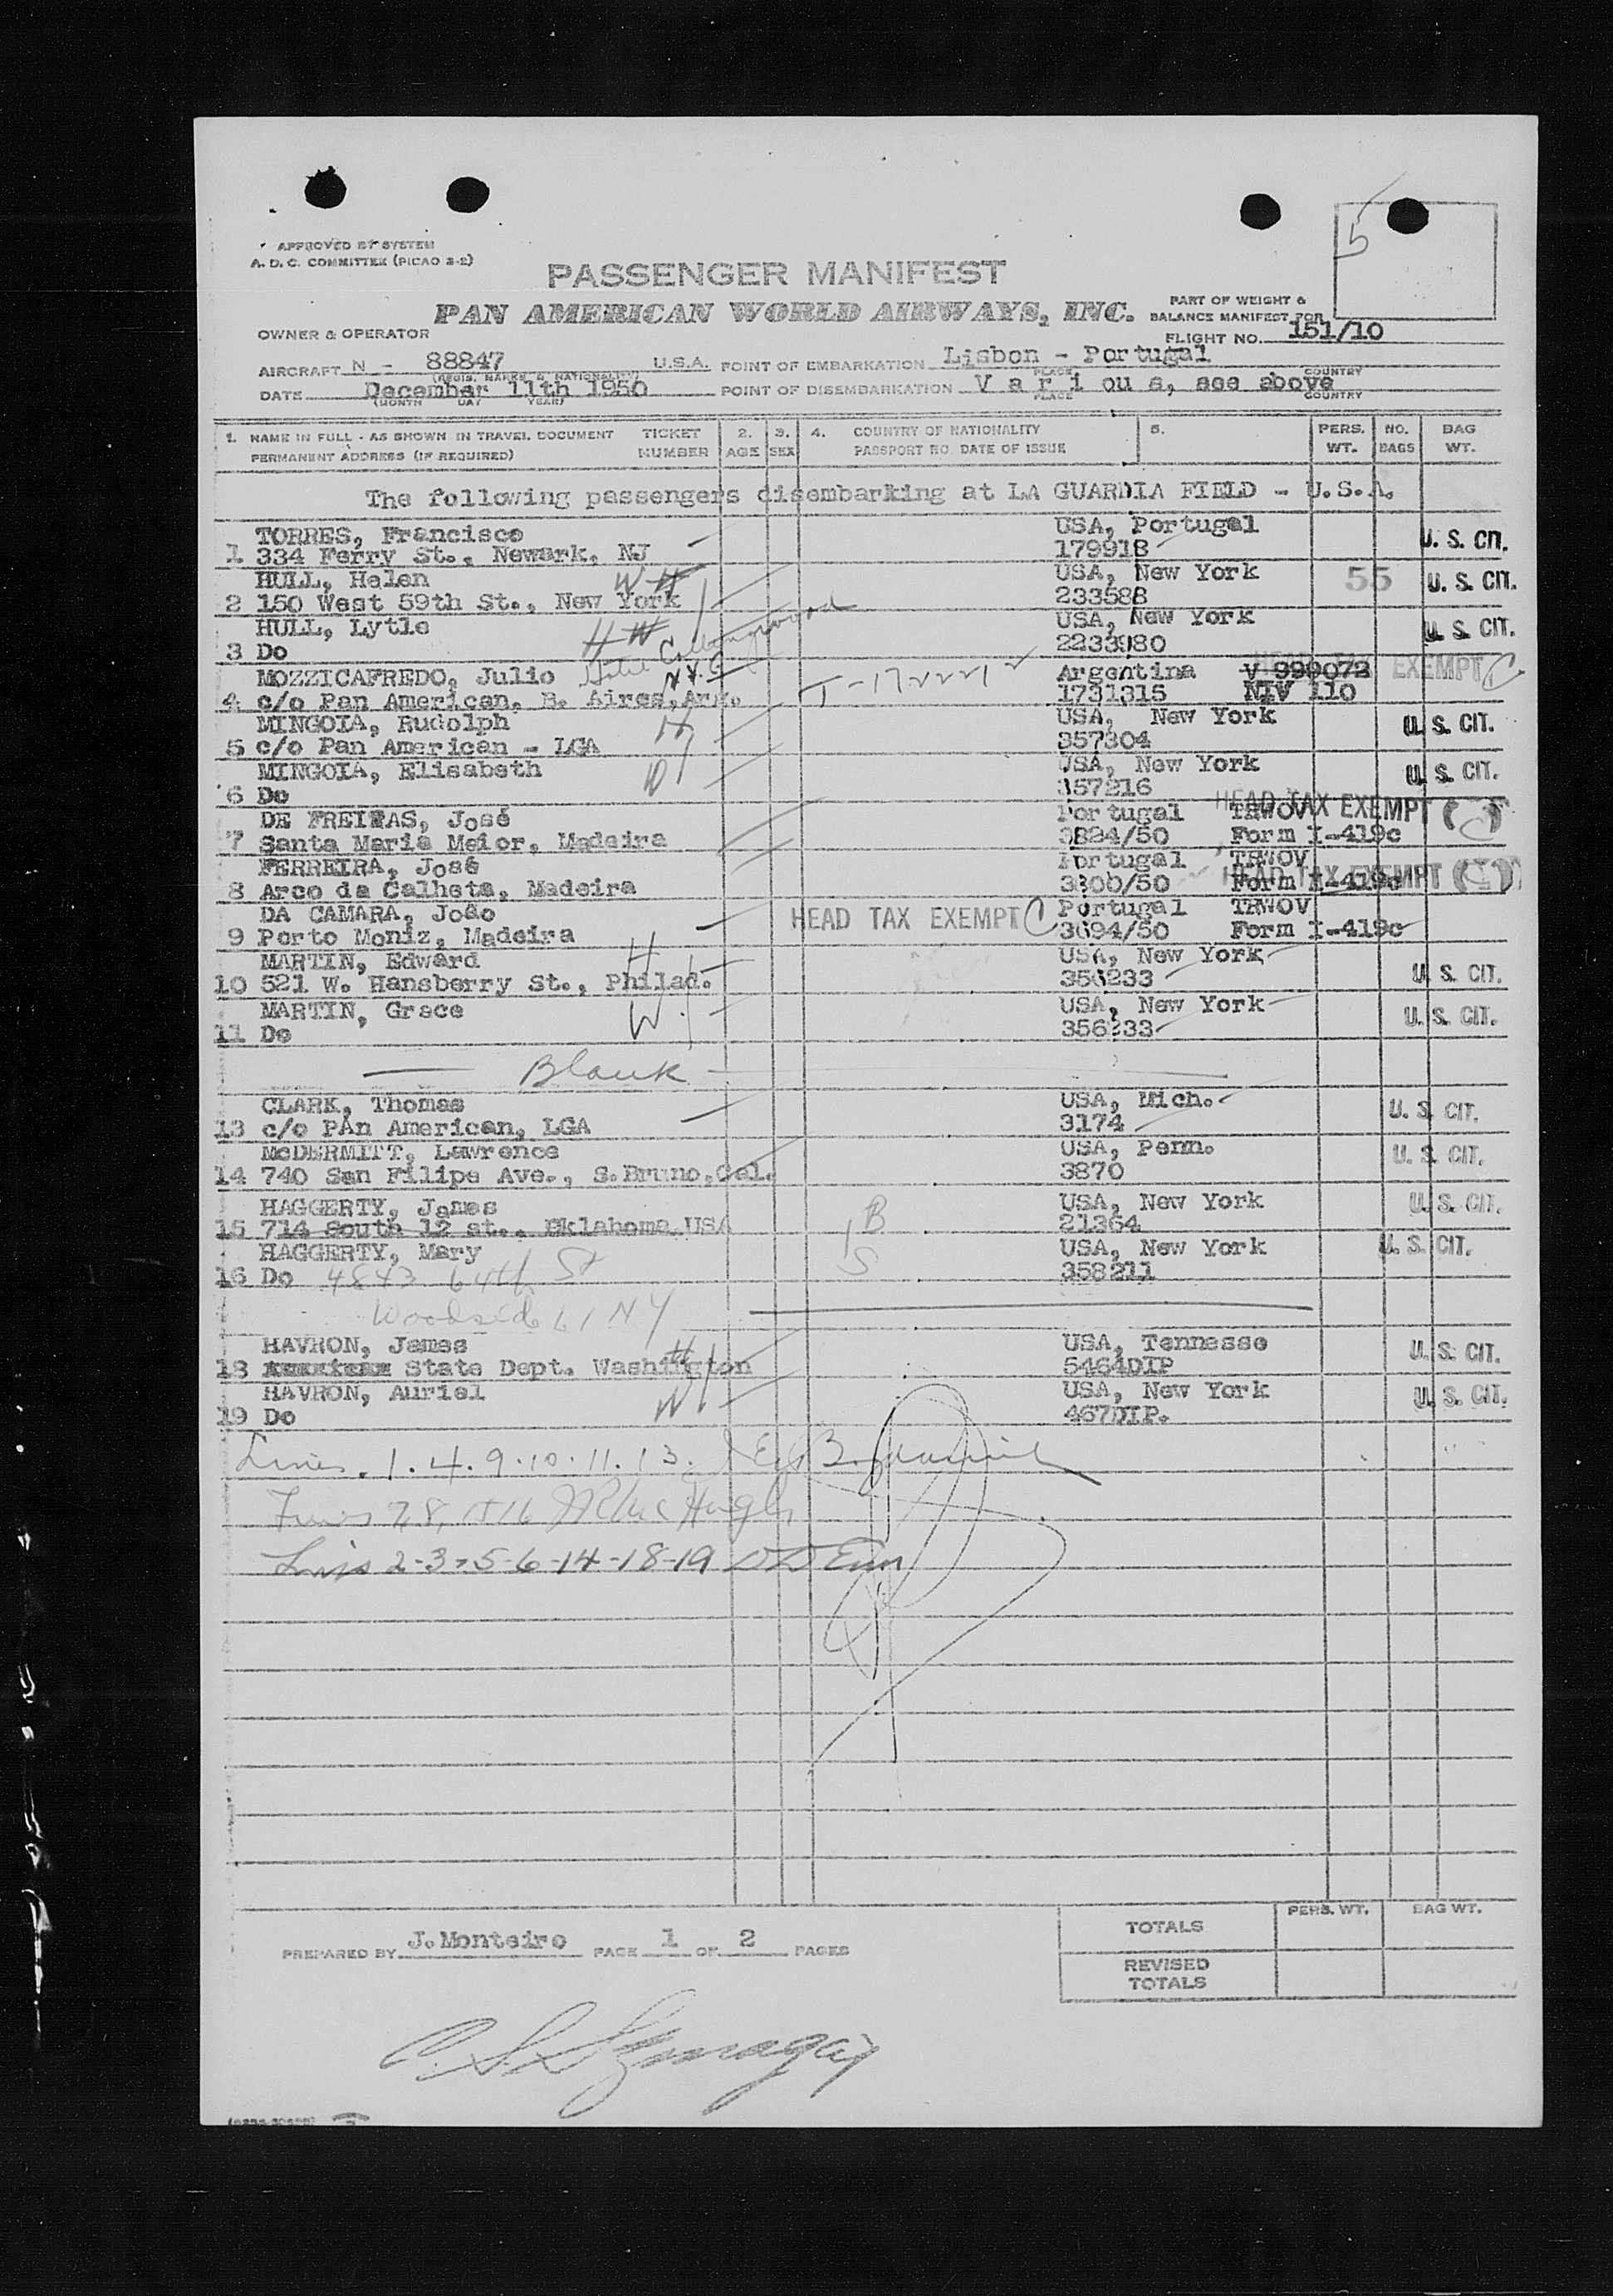 5
APPROVED BY SYSTEM
A. D. C. COMMITTEE (PICAO 3-2)
PASSENGER MANIFEST
PAN AMERICAN WORLD AIRWAYS, INC.
PART OF WEIGHT &
BALANCE MANIFEST FOR
OWNER & OPERATOR
FLIGHT NO. 151/10
AIRCRAFT N - 88847 U.S.A. POINT OF EMBARKATION Lisbon - Portugal
(REGIS. MARKS & NATIONALITY) PLACE COUNTRY
DATE December 11th 1950 POINT OF DISEMBARKATION V a r i ou s, see above
(MONTH DAY YEAR) PLACE COUNTRY
1. NAME IN FULL - AS SHOWN IN TRAVEL DOCUMENT TICKET 2. 3. 4. COUNTRY OF NATIONALITY 5. PERS. NO. BAG
PERMANENT ADDRESS (IF REQUIRED) NUMBER AGE SEX PASSPORT NO. DATE OF ISSUE WT. BAGS WT.
The following passengers disembarking at LA GUARDIA FIELD - U.S.A.
TORRES, Francisco USA, Portugal
1 334 Ferry St., Newark, NJ 179918 U. S. CIT.
HULL, Helen W H USA, New York 55 U. S. CIT.
2 150 West 59th St., New York 233588
HULL, Lytle H W USA, New York U. S. CIT.
3 Do 2233980
MOZZICAFREDO, Julio Hotel Collingwood N.Y.C. Argentina V 999072 HEAD TAX EXEMPT
4 c/o Pan American, B. Aires, Arg. T-172221 1731315 NIV 110
MINGOIA, Rudolph H USA, New York U. S. CIT.
5 c/o Pan American - LGA 357304
MINGOIA, Elisabeth W USA, New York U. S. CIT.
6 Do 357216
DE FREITAS, José Portugal TRWOV HEAD TAX EXEMPT
7 Santa Maria Meior, Madeira 3824/50 Form I-419c
FERREIRA, José Portugal TRWOV
8 Arco da Calheta, Madeira 3800/50 Form I-419c HEAD TAX EXEMPT
DA CAMARA, João HEAD TAX EXEMPT Portugal TRWOV
9 Porto Moniz, Madeira 3694/50 Form I-419c
MARTIN, Edward H USA, New York
10 521 W. Hansberry St., Philad. 356233 U. S. CIT.
MARTIN, Grace W USA, New York
11 Do 356233 U. S. CIT.
Blank
CLARK, Thomas USA, Mich. U. S. CIT.
13 c/o PAn American, LGA 3174
McDERMITT, Lawrence USA, Penn. U. S. CIT.
14 740 San Filipe Ave., S.Bruno,Cal. 3870
HAGGERTY, James B USA, New York U. S. CIT.
15 714 South 12 st., Oklahoma,USA 21364
HAGGERTY, Mary S USA, New York U. S. CIT.
16 Do 4843 64th St 358211
Woodside 61 NY
HAVRON, James H USA, Tennesse U. S. CIT.
18 State Dept. Washington 5464DIP
HAVRON, Auriel W USA, New York U. S. CIT.
19 Do 467DIP.
Lines . 1 . 4 . 9 . 10 . 11 . 13.
Lines 7,8, 15 16
Lines 2-3-5-6-14-18-19
PREPARED BY J.Monteiro PAGE 1 OF 2 PAGES
PERS. WT. BAG WT.
TOTALS
REVISED
TOTALS